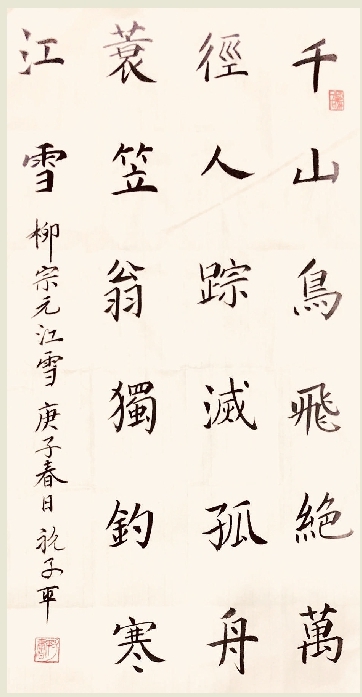 千山鳥飛絶萬
徑人踪滅孤舟
蓑笠翁獨釣寒
江雪
柳宗元江雪庚子春日